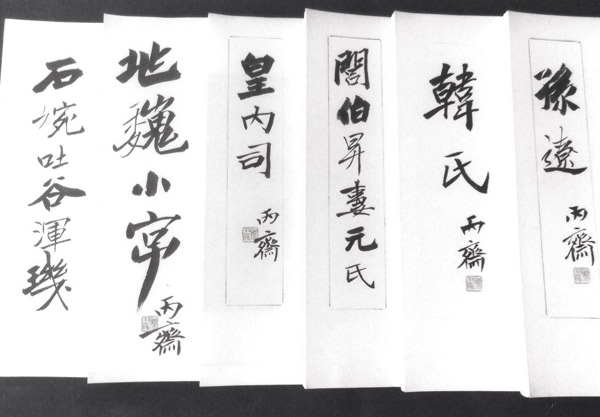 孫遼
丙齋
韓氏
丙齋
閻伯昇妻元氏
皇内司
丙齋
北魏小字
丙齋
石婉吐谷渾璣